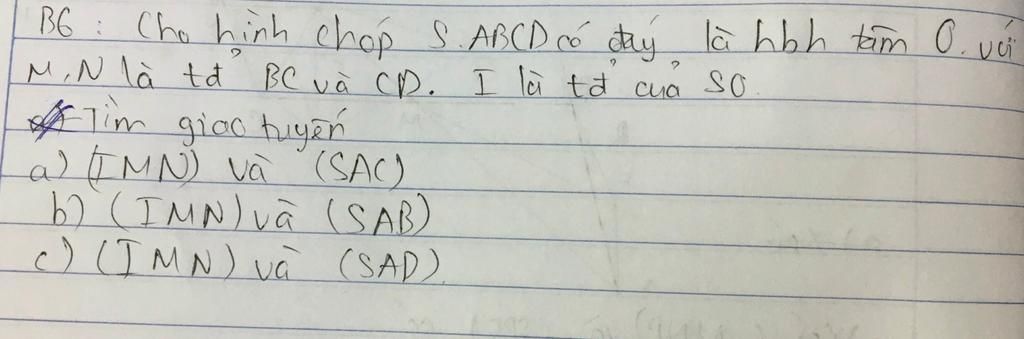 B6: Cho hình chóp S.ABCD có đáy là hbh tâm O. với
M, N là tđ̉ BC và CD. I là tđ̉ của SO.
Tìm giao tuyến
a) (IMN) và (SAC)
b) (IMN) và (SAB)
c) (IMN) và (SAD).